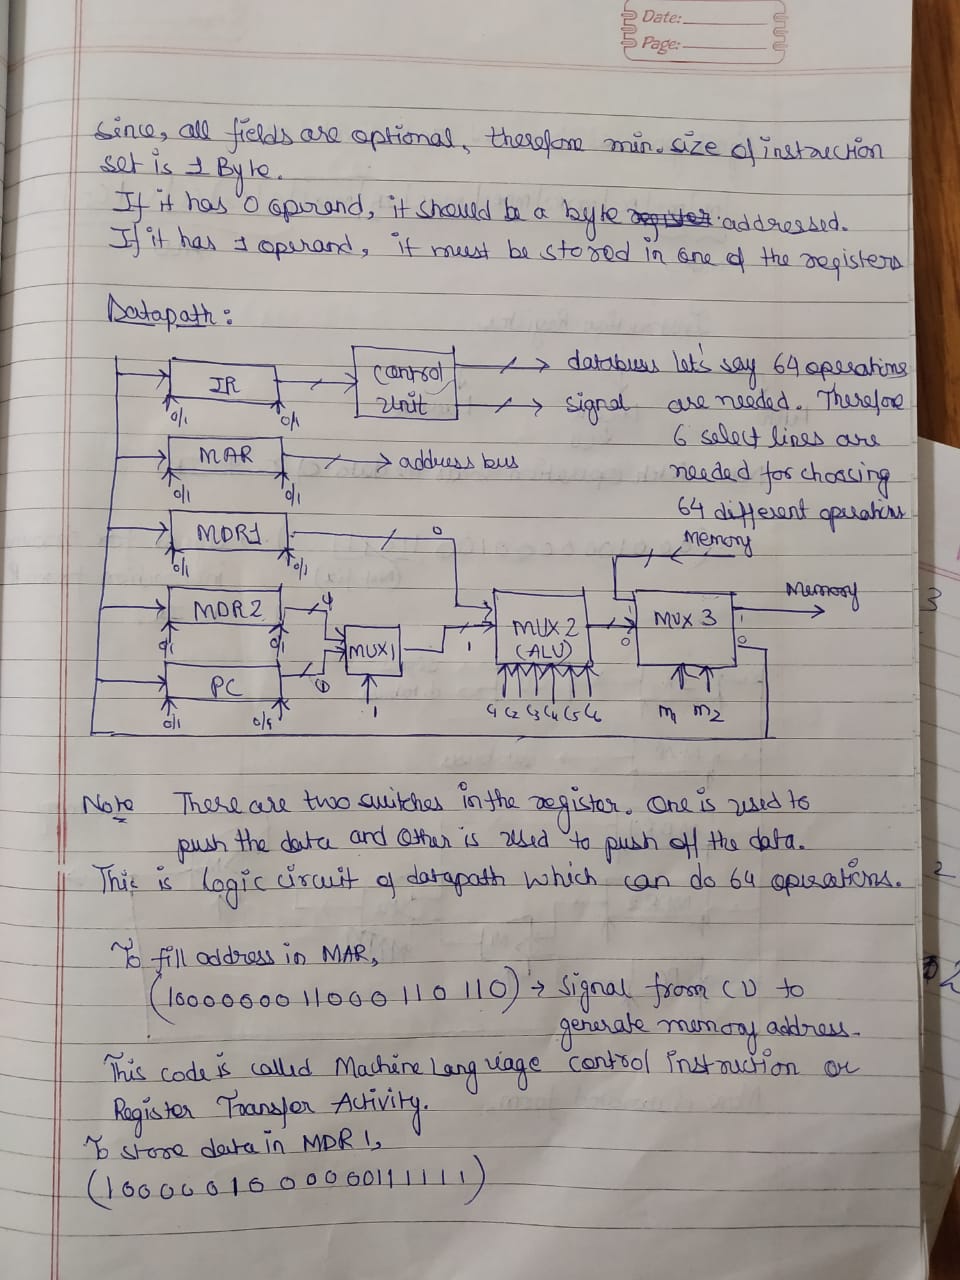 Date:
Page:
Since, all fields are optional, therefore min. size of instruction
set is 1 Byte.
If it has 0 operand, it should be a byte addressed.
If it has 1 operand, it must be stored in one of the registers
Datapath:
IR
0/1
0/1
Control
Unit
databus
signal
let's say 64 operations
are needed. Therefore
6 select lines are
needed for choosing
64 different operations
MAR
0/1
0/1
address bus
MDR1
0/1
0/1
0
Memory
MDR2
0/1
0/1
MUX1
1
1
MUX 2
(ALU)
C1 C2 C3 C4 C5 C6
1
0
MUX 3
1
0
Memory
m1 m2
PC
0/1
3
Note There are two switches in the register. One is used to
push the data and other is used to push off the data.
This is logic circuit of datapath which can do 64 operations.
2
To fill address in MAR,
(1000000011000110110) → signal from CU to
generate memory address.
2
This code is called Machine Language control instruction or
Register Transfer Activity.
To store data in MDR1,